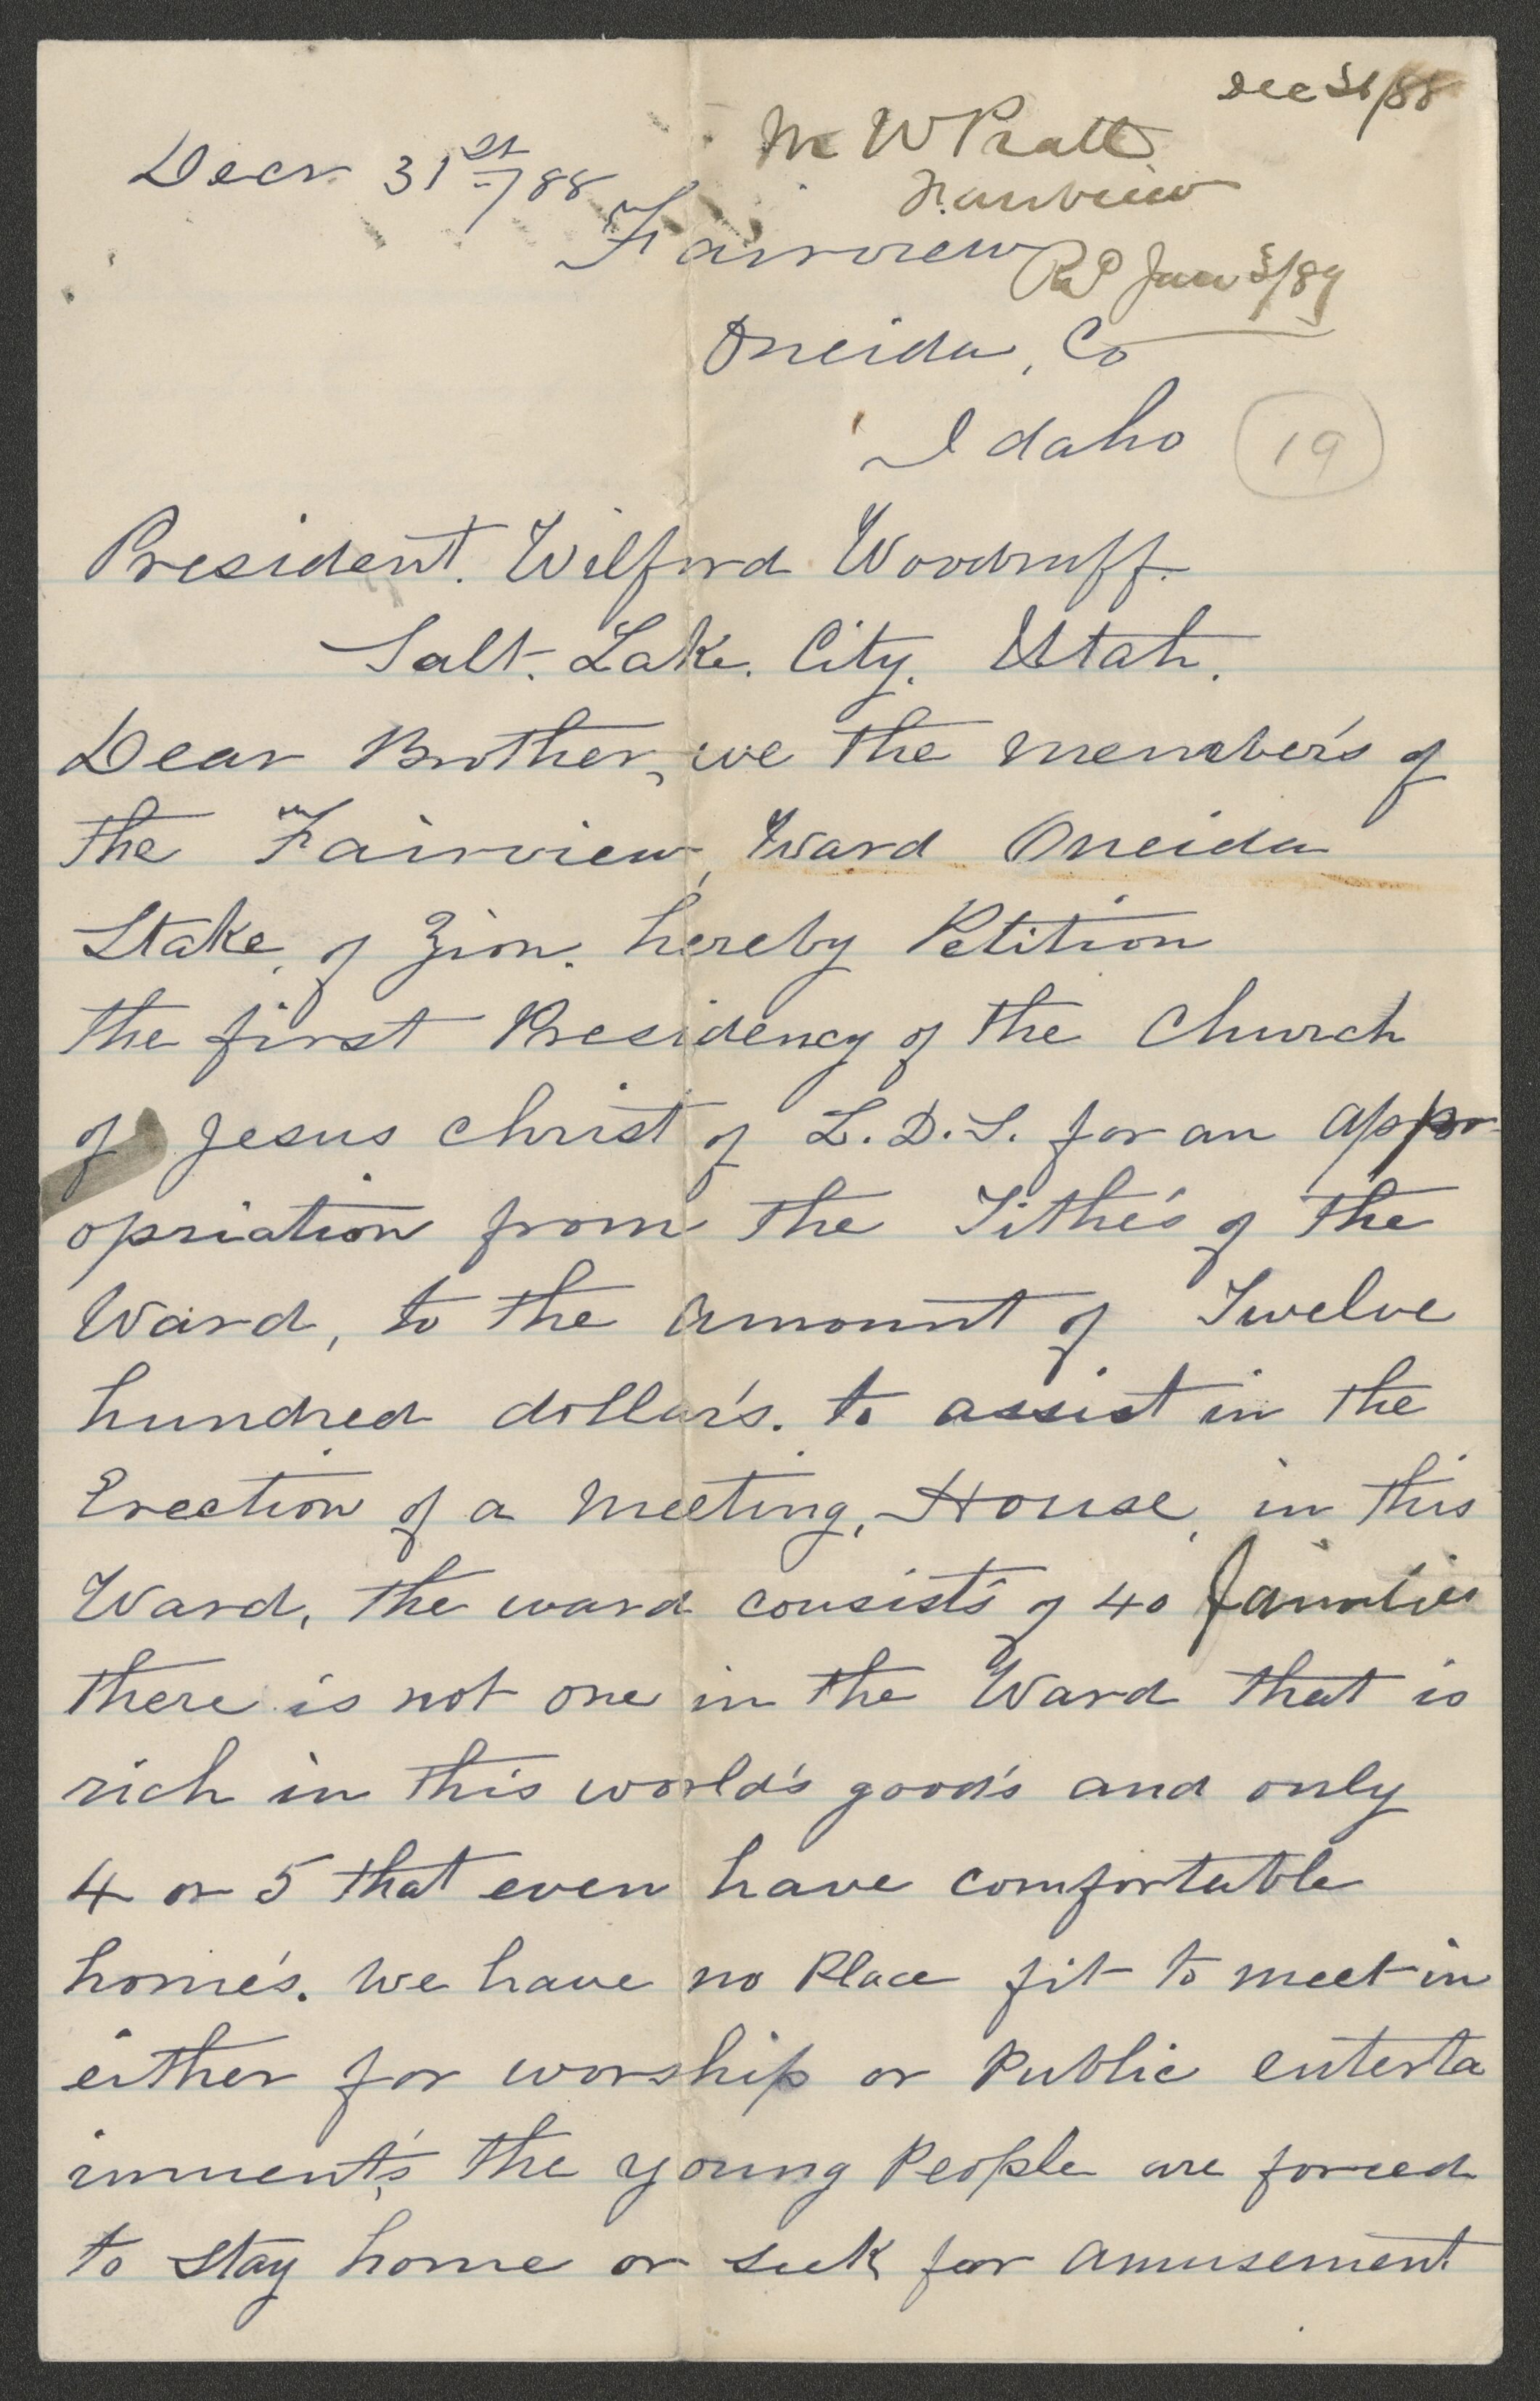 Dec 31/88
M W Pratt
Fairview
Decr 31st/88
Fairview
Rcd Jan 3/89
Oneida, Co
Idaho
19
President. Wilford Woodruff.
Salt. Lake. City. Utah.
Dear Brother, we the member's of
the Fairview, Ward Oneida
Stake, of Zion. hereby Petition
the first Presidency of the Church
of Jesus Christ of L.D.S. for an appr-
opriation from the Tithe's of the
Ward, to the amount of Twelve
hundred dollar's. to assist in the
Erection of a Meeting, House, in this
Ward, the ward consist's of 40 families
there is not one in the Ward that is
rich in this world's good's and only
4 or 5 that even have comfortable
home's. We have no Place fit to meet in
either for worship or Public enterta
inment's, the young People are forced
to stay home or seek for amusement